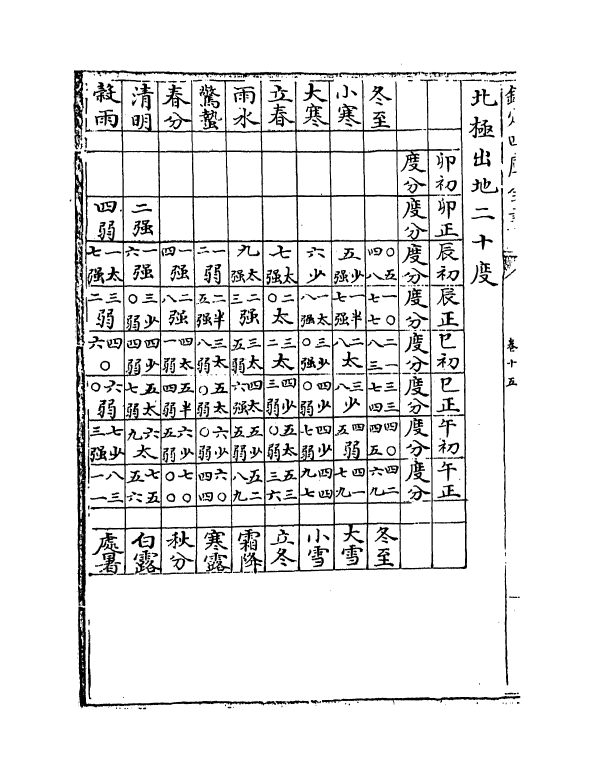 卷十五
北極出地二十度
卯初 卯正 辰初 辰正 巳初 巳正 午初 午正
度分 度分 度分 度分 度分 度分 度分 度分
冬至 〇四五八 一七〇七 二八一三 三七三四 四四〇五 四六二九 冬至
小寒 五少强 一七半强 二八太 三八少 四五弱 四七一九 大雪
大寒 六少 一八太强 三〇少强 四〇少弱 四七少弱 四九四七 小雪
立春 七太强 二〇太 三二太 四三少弱 五〇太弱 五三三六 立冬
雨水 九太强 二三强 三五太弱 四六太强 五五少弱 五八二九 霜降
驚蟄 一二弱 二五半强 三八太弱 五〇太弱 六〇少弱 六四〇四 寒露
春分 一四强 二八强 四一太弱 五四半弱 六五少弱 七〇〇〇 秋分
清明 二强 一六强 三〇少弱 四四少弱 五七太弱 六九太 七五五六 白露
穀雨 四弱 一七太强 三二弱 四六〇 六〇弱 七三少强 八一三一 處暑